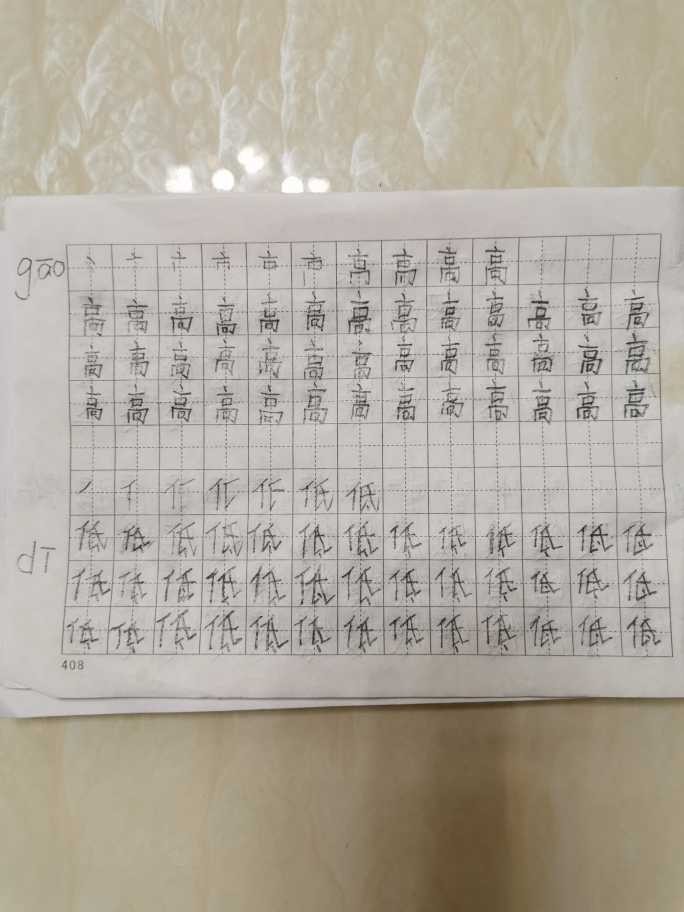 gāo 丶 亠 高 高 高 高
高 高 高 高 高 高 高 高 高 高 高 高 高
高 高 高 高 高 高 高 高 高 高 高 高 高
高 高 高 高 高 高 高 高 高 高 高 高 高
丿 亻 低
dī 低 低 低 低 低 低 低 低 低 低 低 低 低
低 低 低 低 低 低 低 低 低 低 低 低 低
低 低 低 低 低 低 低 低 低 低 低 低 低
408